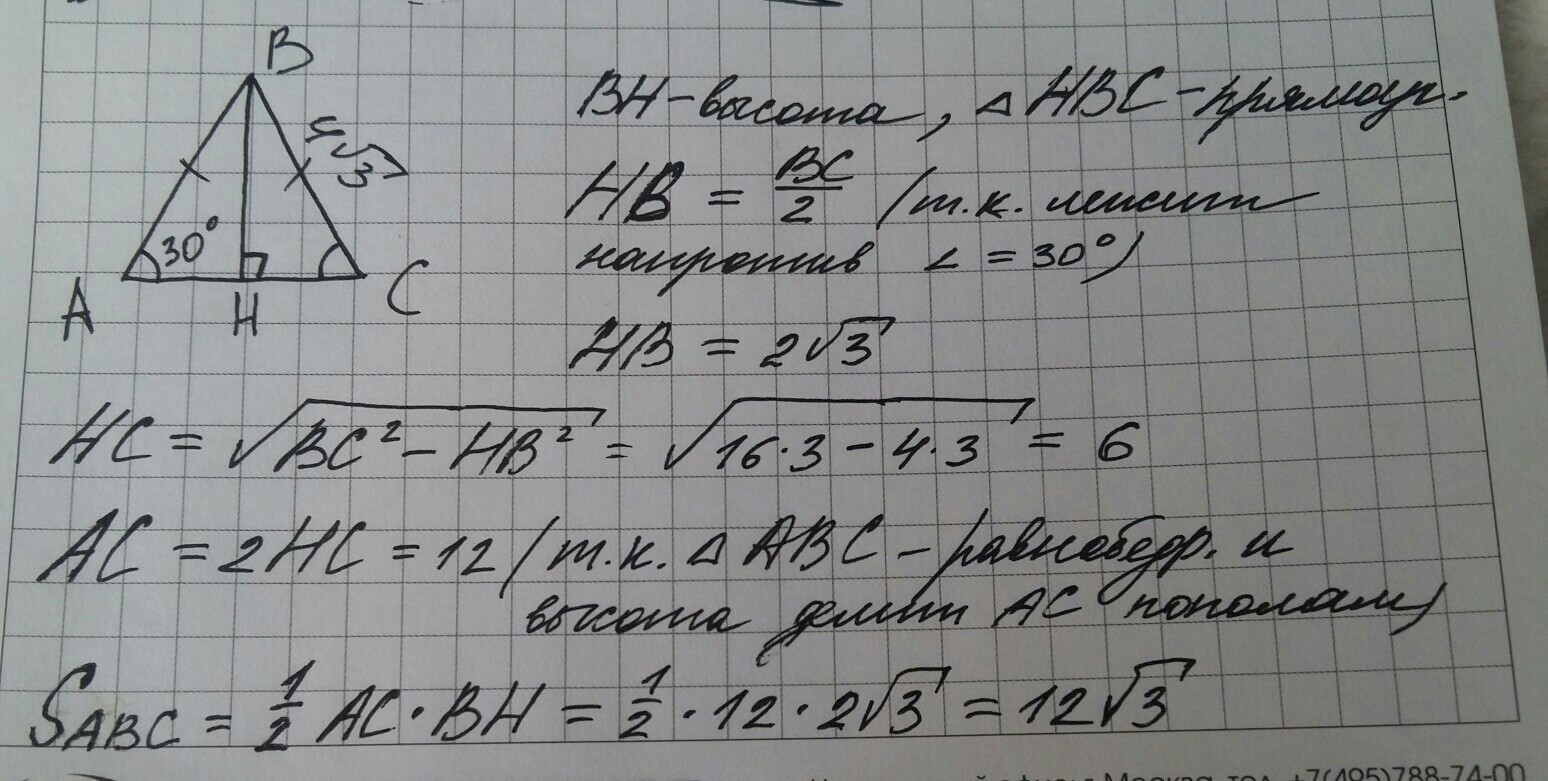 B
4√3
30°
A
H
C
BH - высота, △ HBC - прямоуг.
HB = BC/2 (т.к. лежит
напротив ∠ = 30°)
HB = 2√3
HC = √(BC² - HB²) = √(16·3 - 4·3) = 6
AC = 2HC = 12 (т.к. △ ABC - равнобедр. и
высота делит AC пополам)
S ABC = 1/2 AC · BH = 1/2 · 12 · 2√3 = 12√3
Москва, тел. +7(495)788-74-00